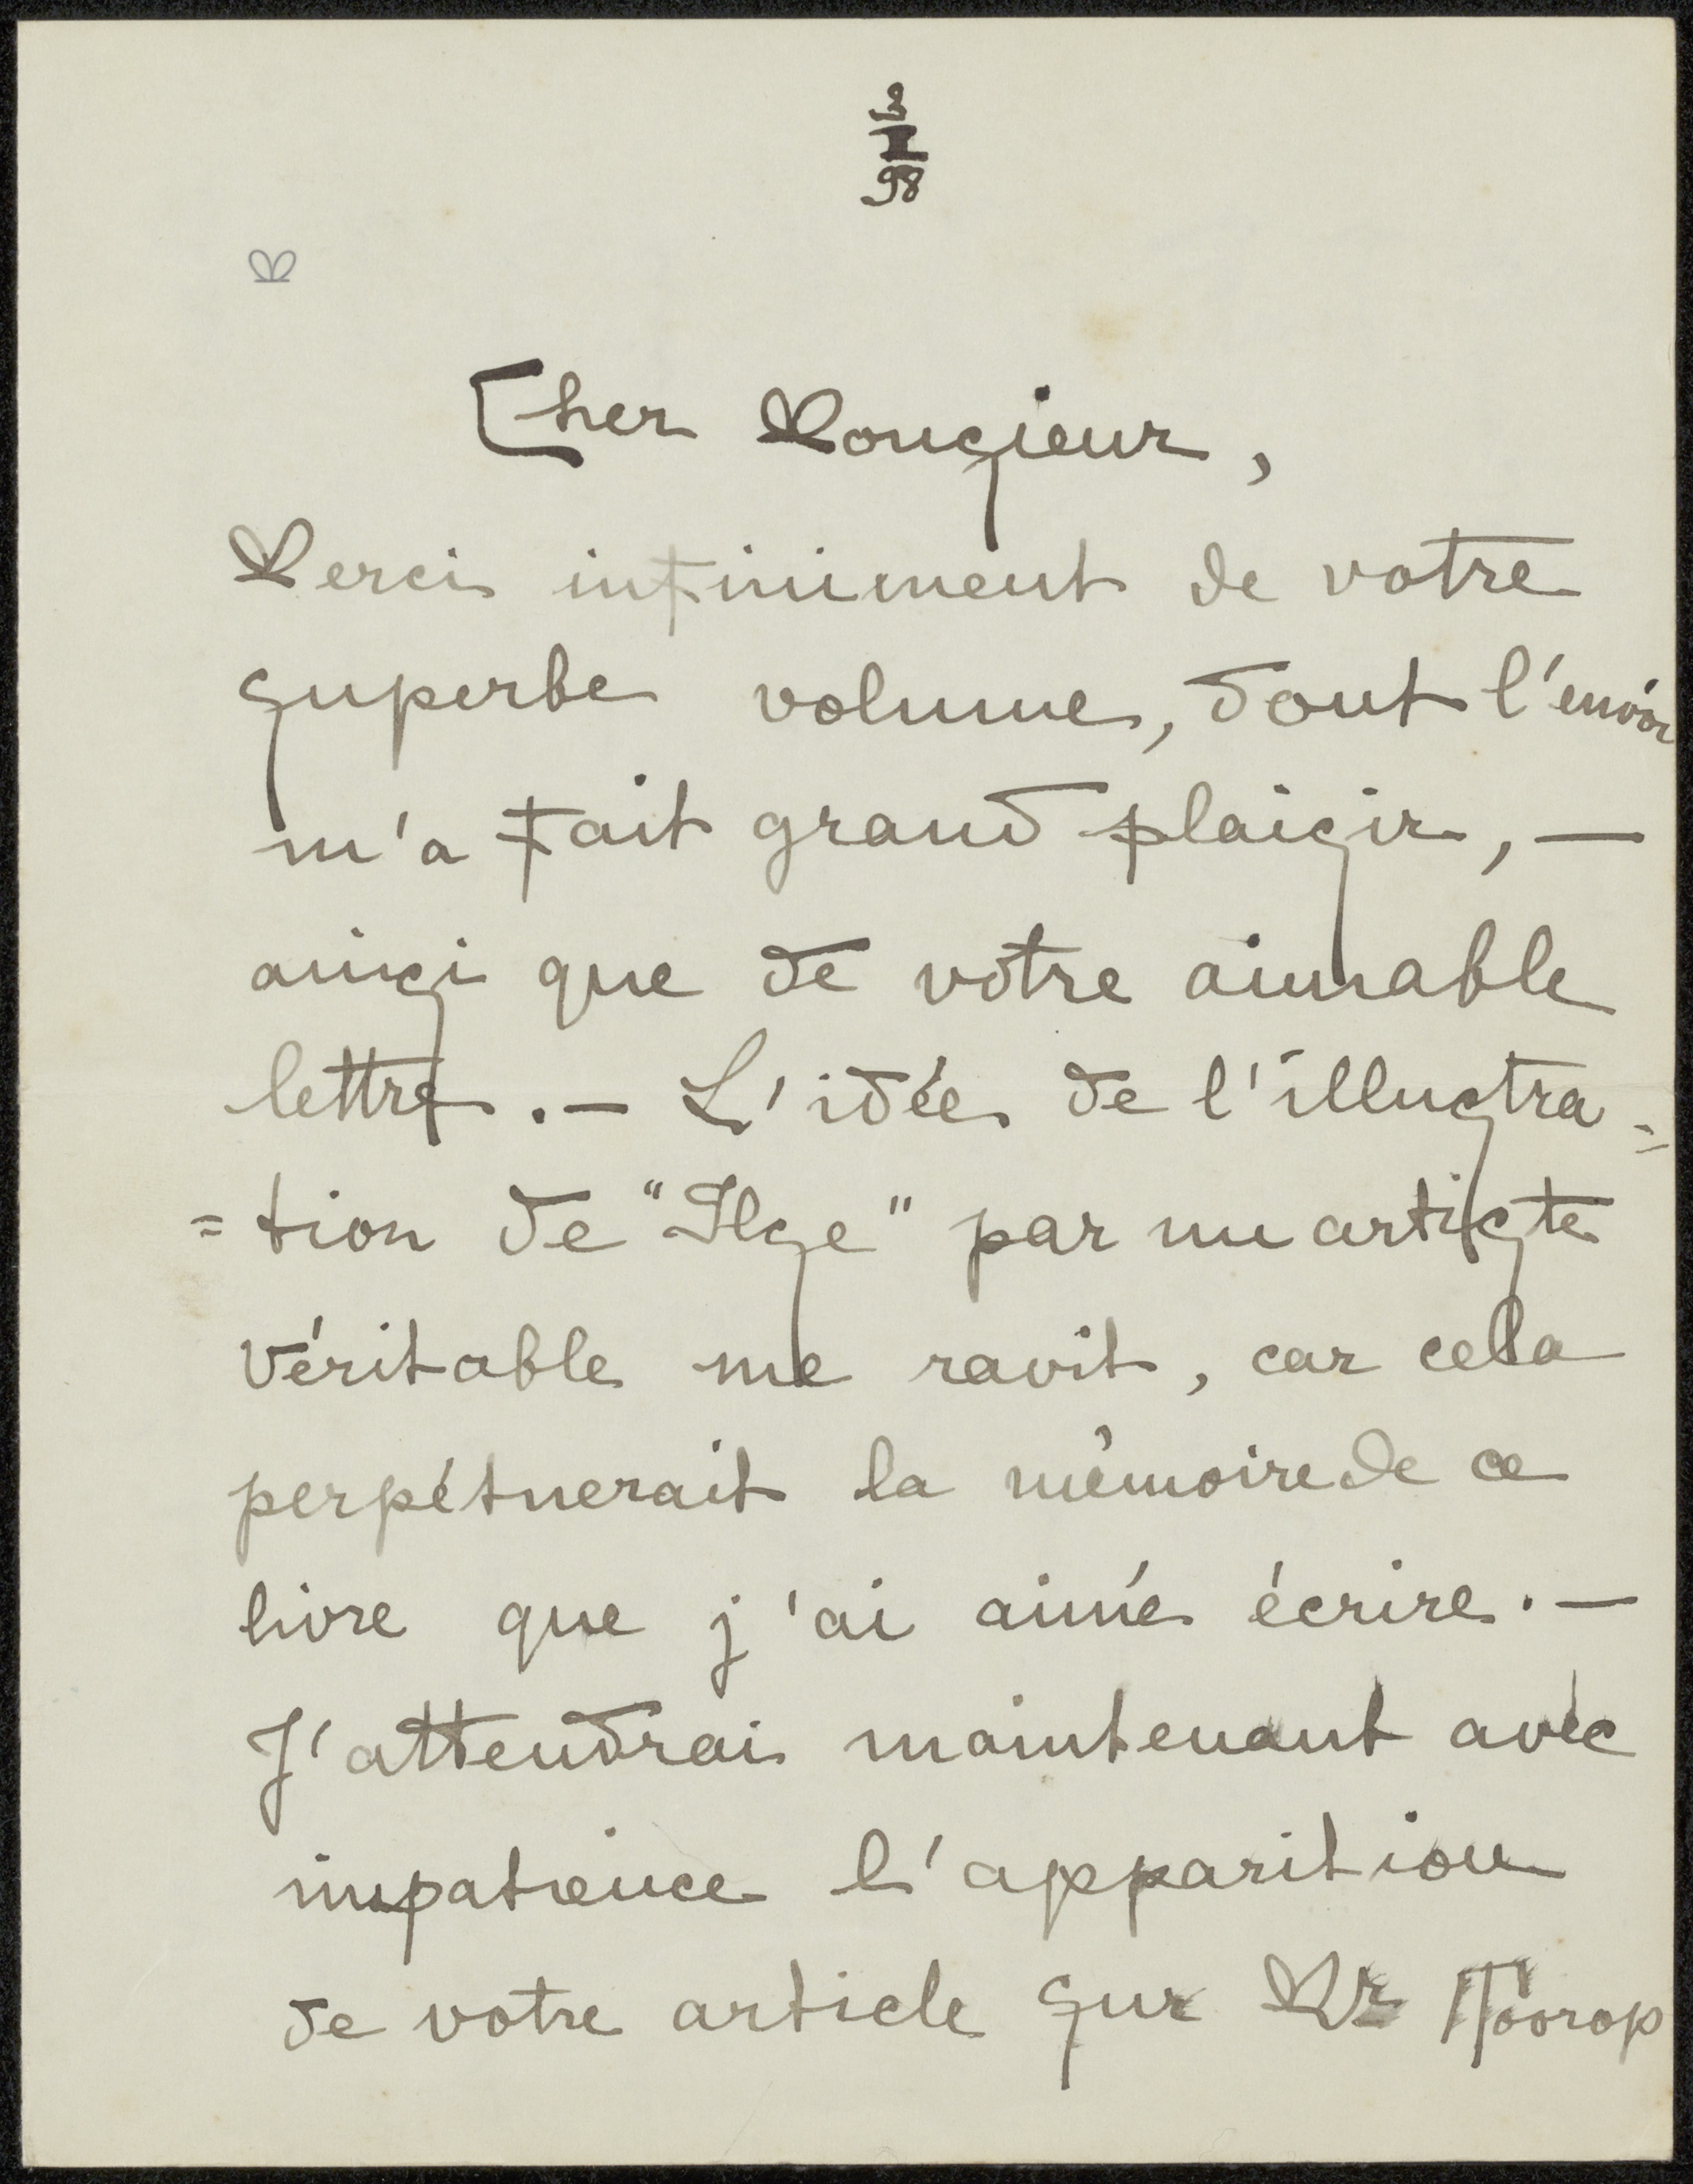 3
I
98
Cher Monsieur,
Merci infiniment de votre
superbe volume, dont l'envoi
m'a fait grand plaisir, —
ainsi que de votre aimable
lettre. — L'idée de l'illustra=
=tion de "Ilse" par un artiste
véritable me ravit, car cela
perpétuerait la mémoire de ce
livre que j'ai aimé écrire. —
J'attendrai maintenant avec
impatience l'apparition
de votre article sur Mr Toorop